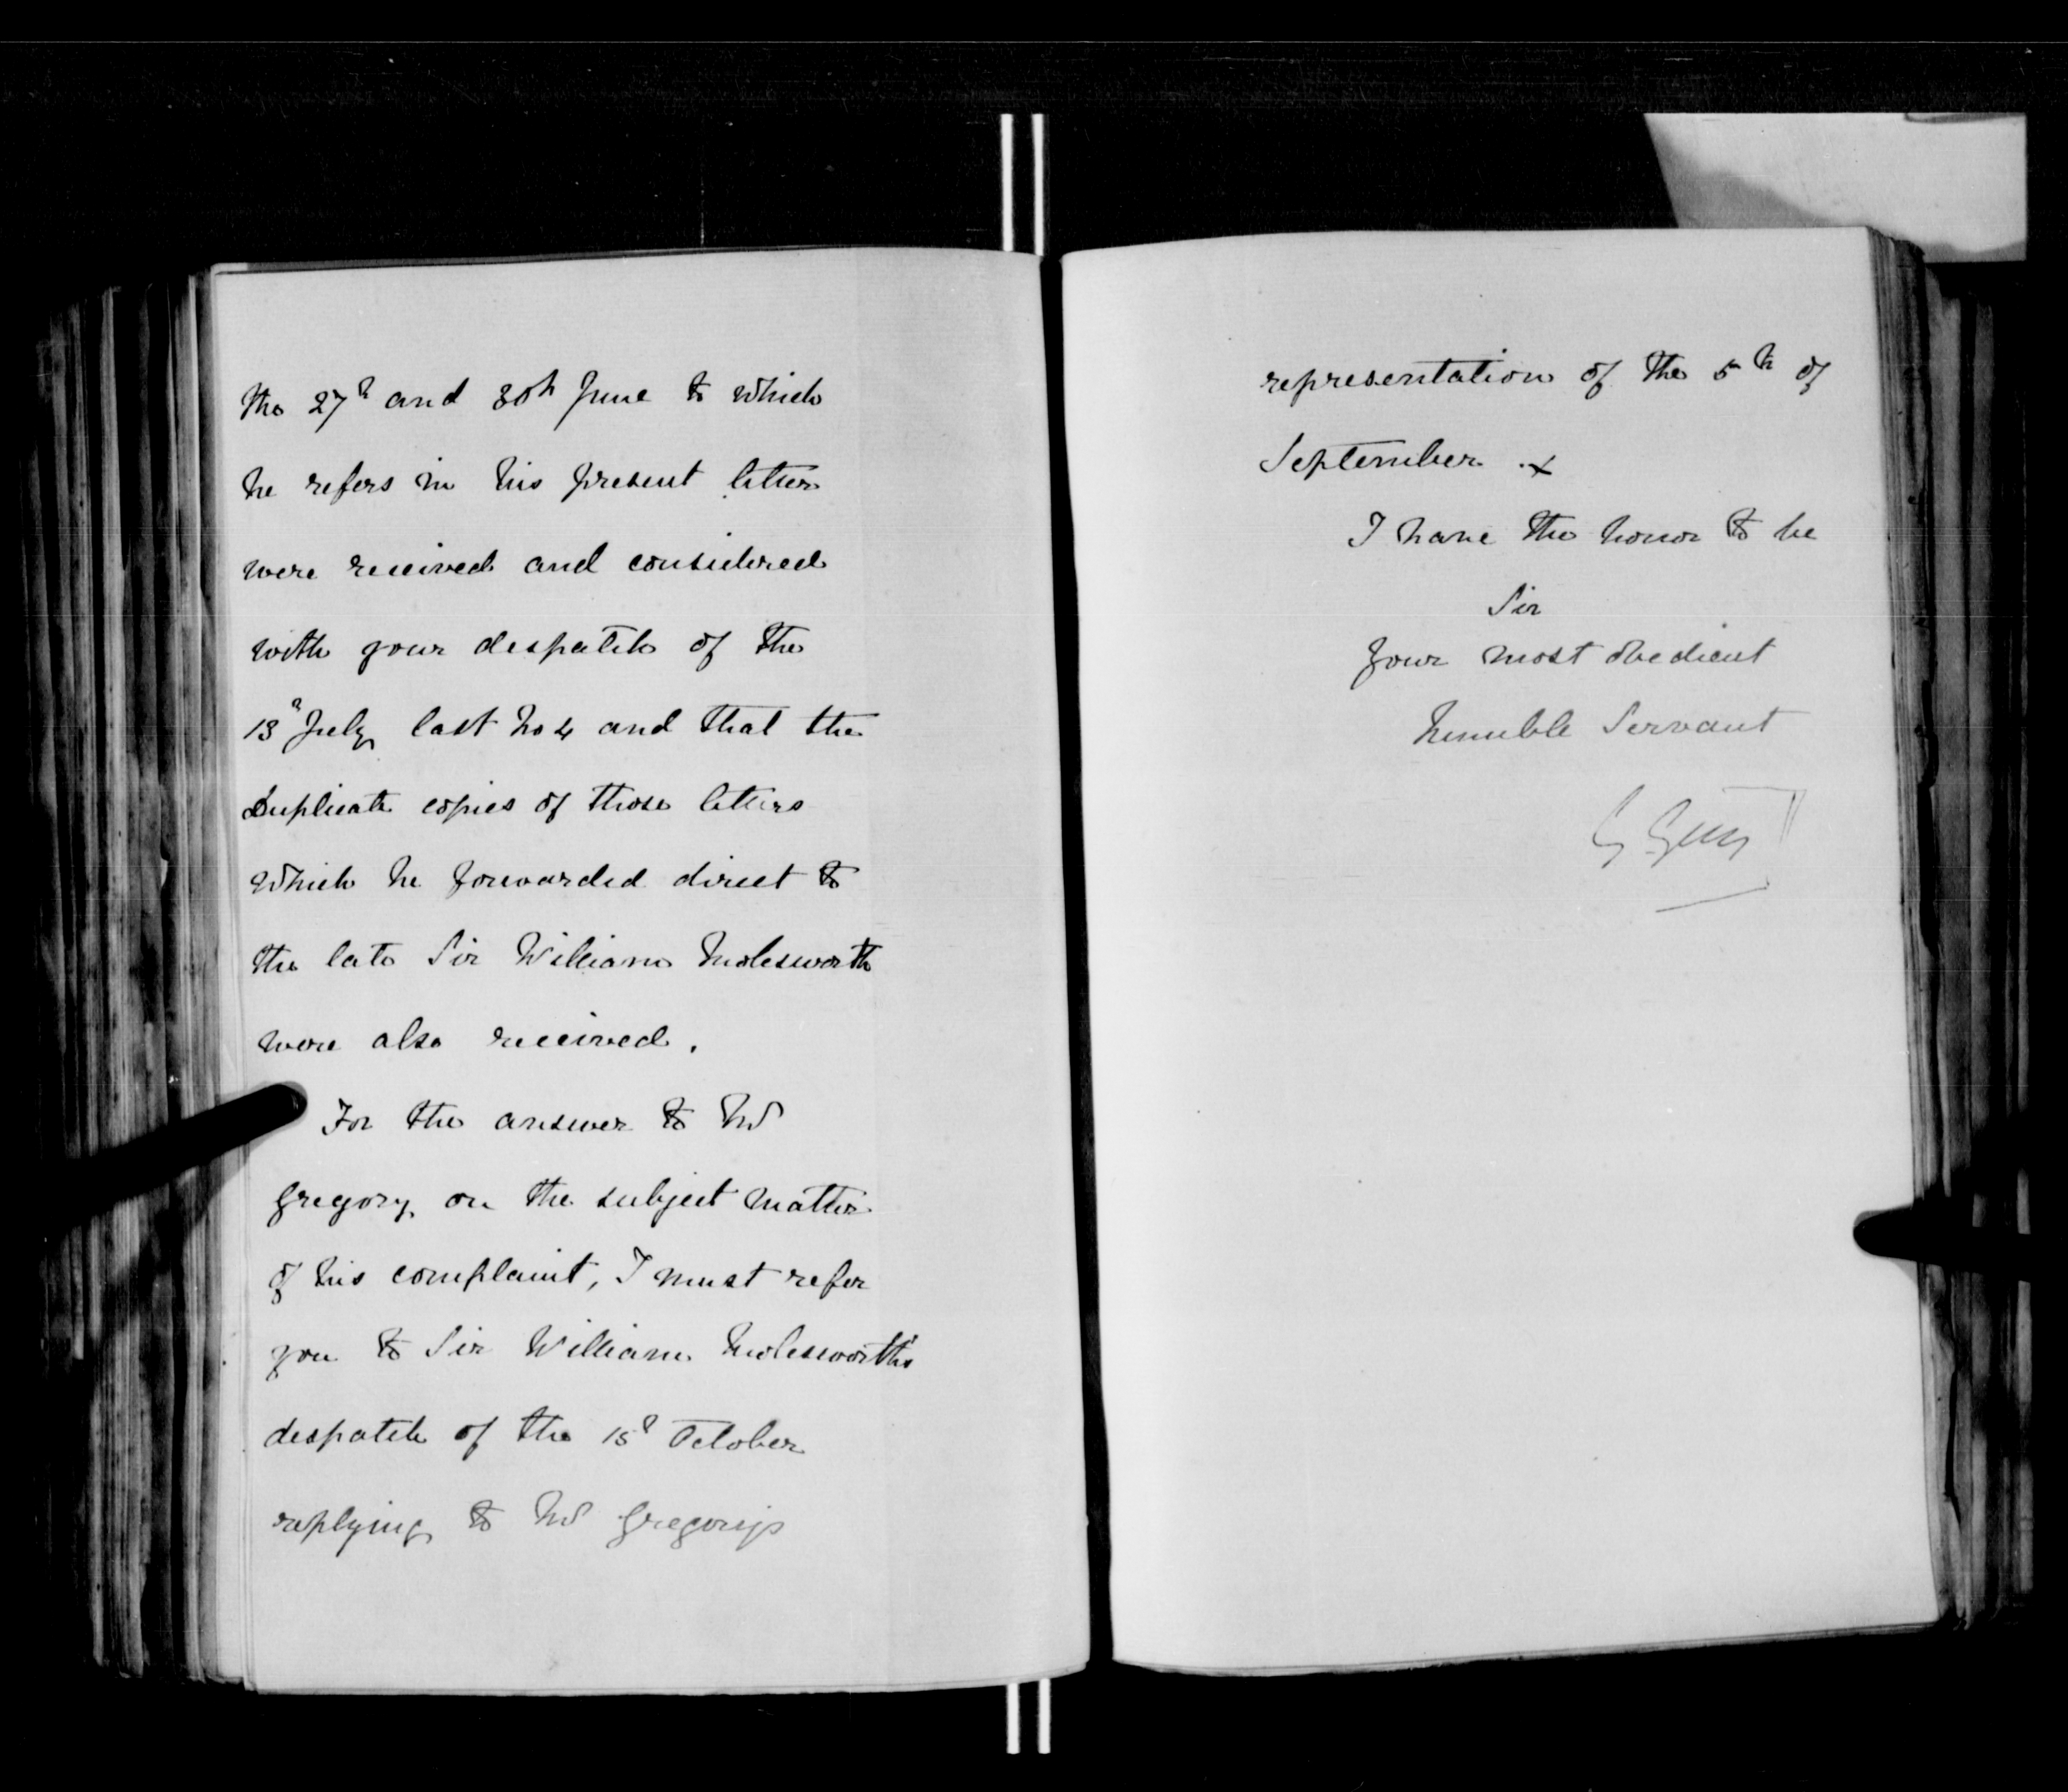 the 27th and 30th June to which
he refers in his present letter
were received and considered
with your despatch of the
13th July last No 4 and that the
duplicate copies of those letters
which he forwarded direct to
the late Sir William Molesworth
were also received.
For the answer to Mr
Gregory on the subject matter
of his complaint, I must refer
you to Sir William Molesworth's
despatch of the October
replying to Mr Gregory's
representation of the 5th of
September. x
I have the honor to be
Sir
Your most obedient
humble Servant
G Grey